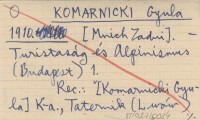 KOMARNICKI Gyula
1910. [Mnich Zadni]. -
Turistaság és Alpinizmus
(Budapest) 1.
Rec.: "[Komarnicki Gyu-
la] K-a., Taternik (Lwów)